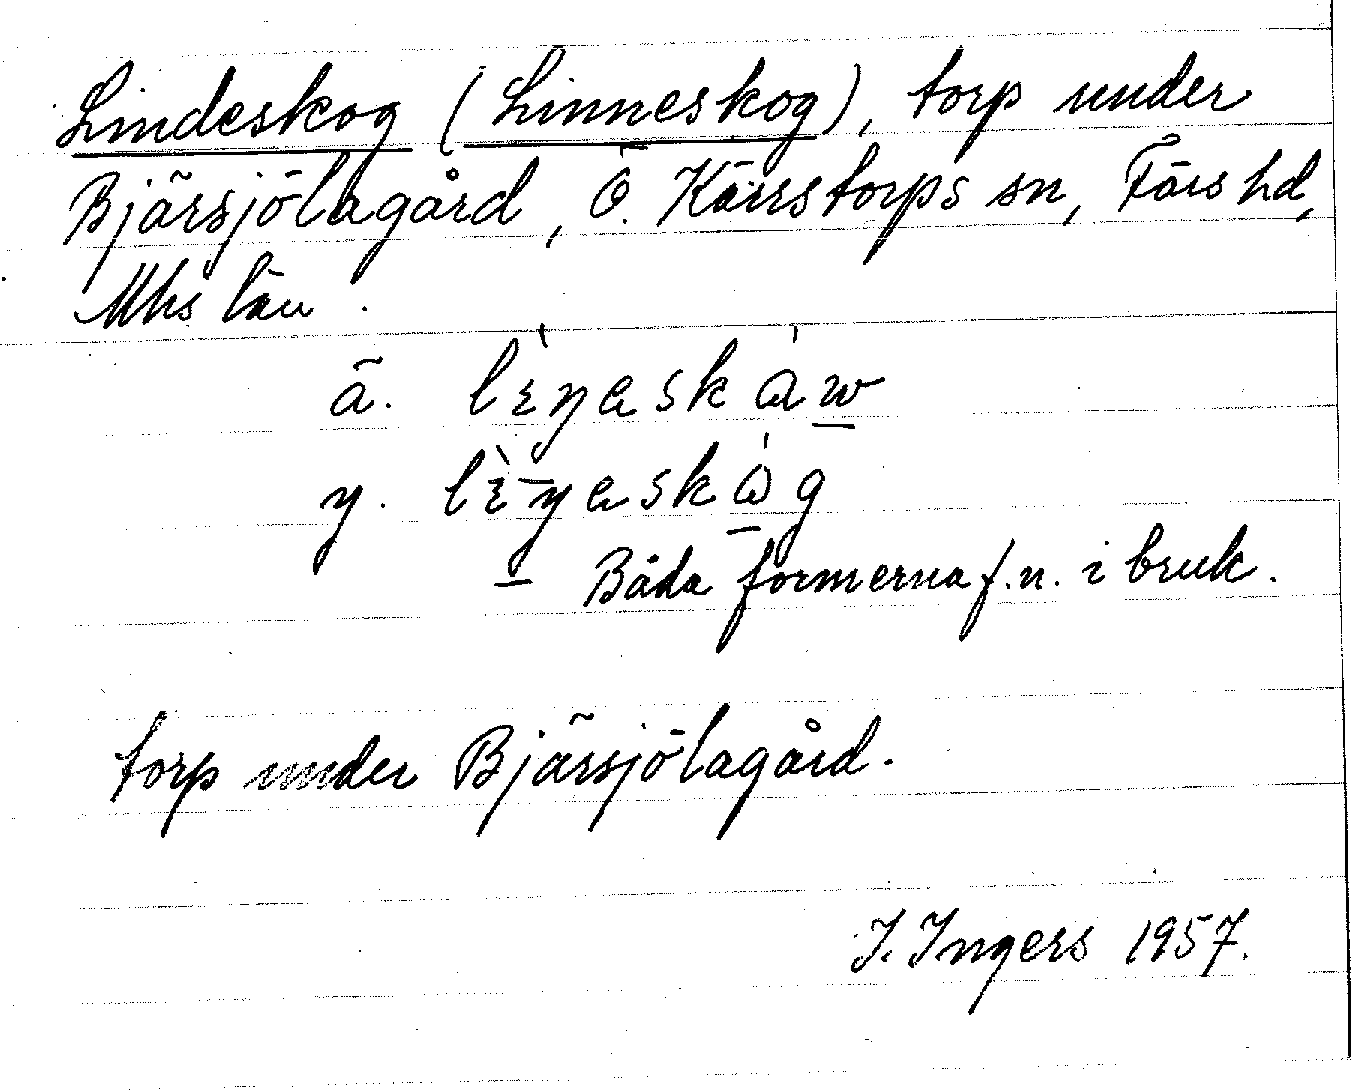 Lindeskog (Linneskog), torp under
Bjärsjölagård, Ö. Kärrstorps sn, Färs hd,
Mhs län.
ä. lèŋaskåw
y. lèŋaskåg
– Båda formerna f.n. i bruk.
torp under Bjärsjölagård.
I. Ingers 1957.